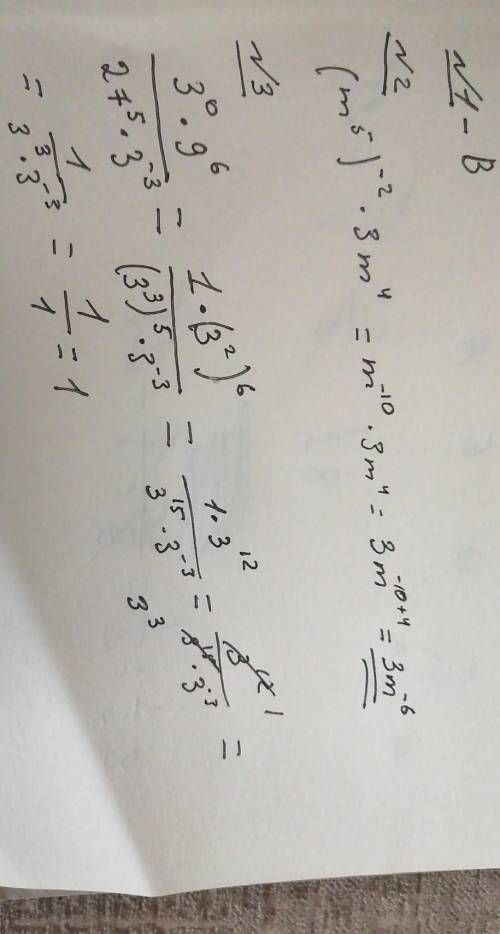 №1 - В
№2
(m⁵)⁻² · 3m⁴ = m⁻¹⁰ · 3m⁴ = 3m⁻¹⁰⁺⁴ = 3m⁻⁶
№3
3⁰ · 9⁶ / 27⁵ · 3⁻³ = 1 · (3²)⁶ / (3³)⁵ · 3⁻³ = 1 · 3¹² / 3¹⁵ · 3⁻³ = 3¹² 1 / 3¹⁵ · 3⁻³ =
3³
= 1 / 3³ · 3⁻³ = 1 / 1 = 1